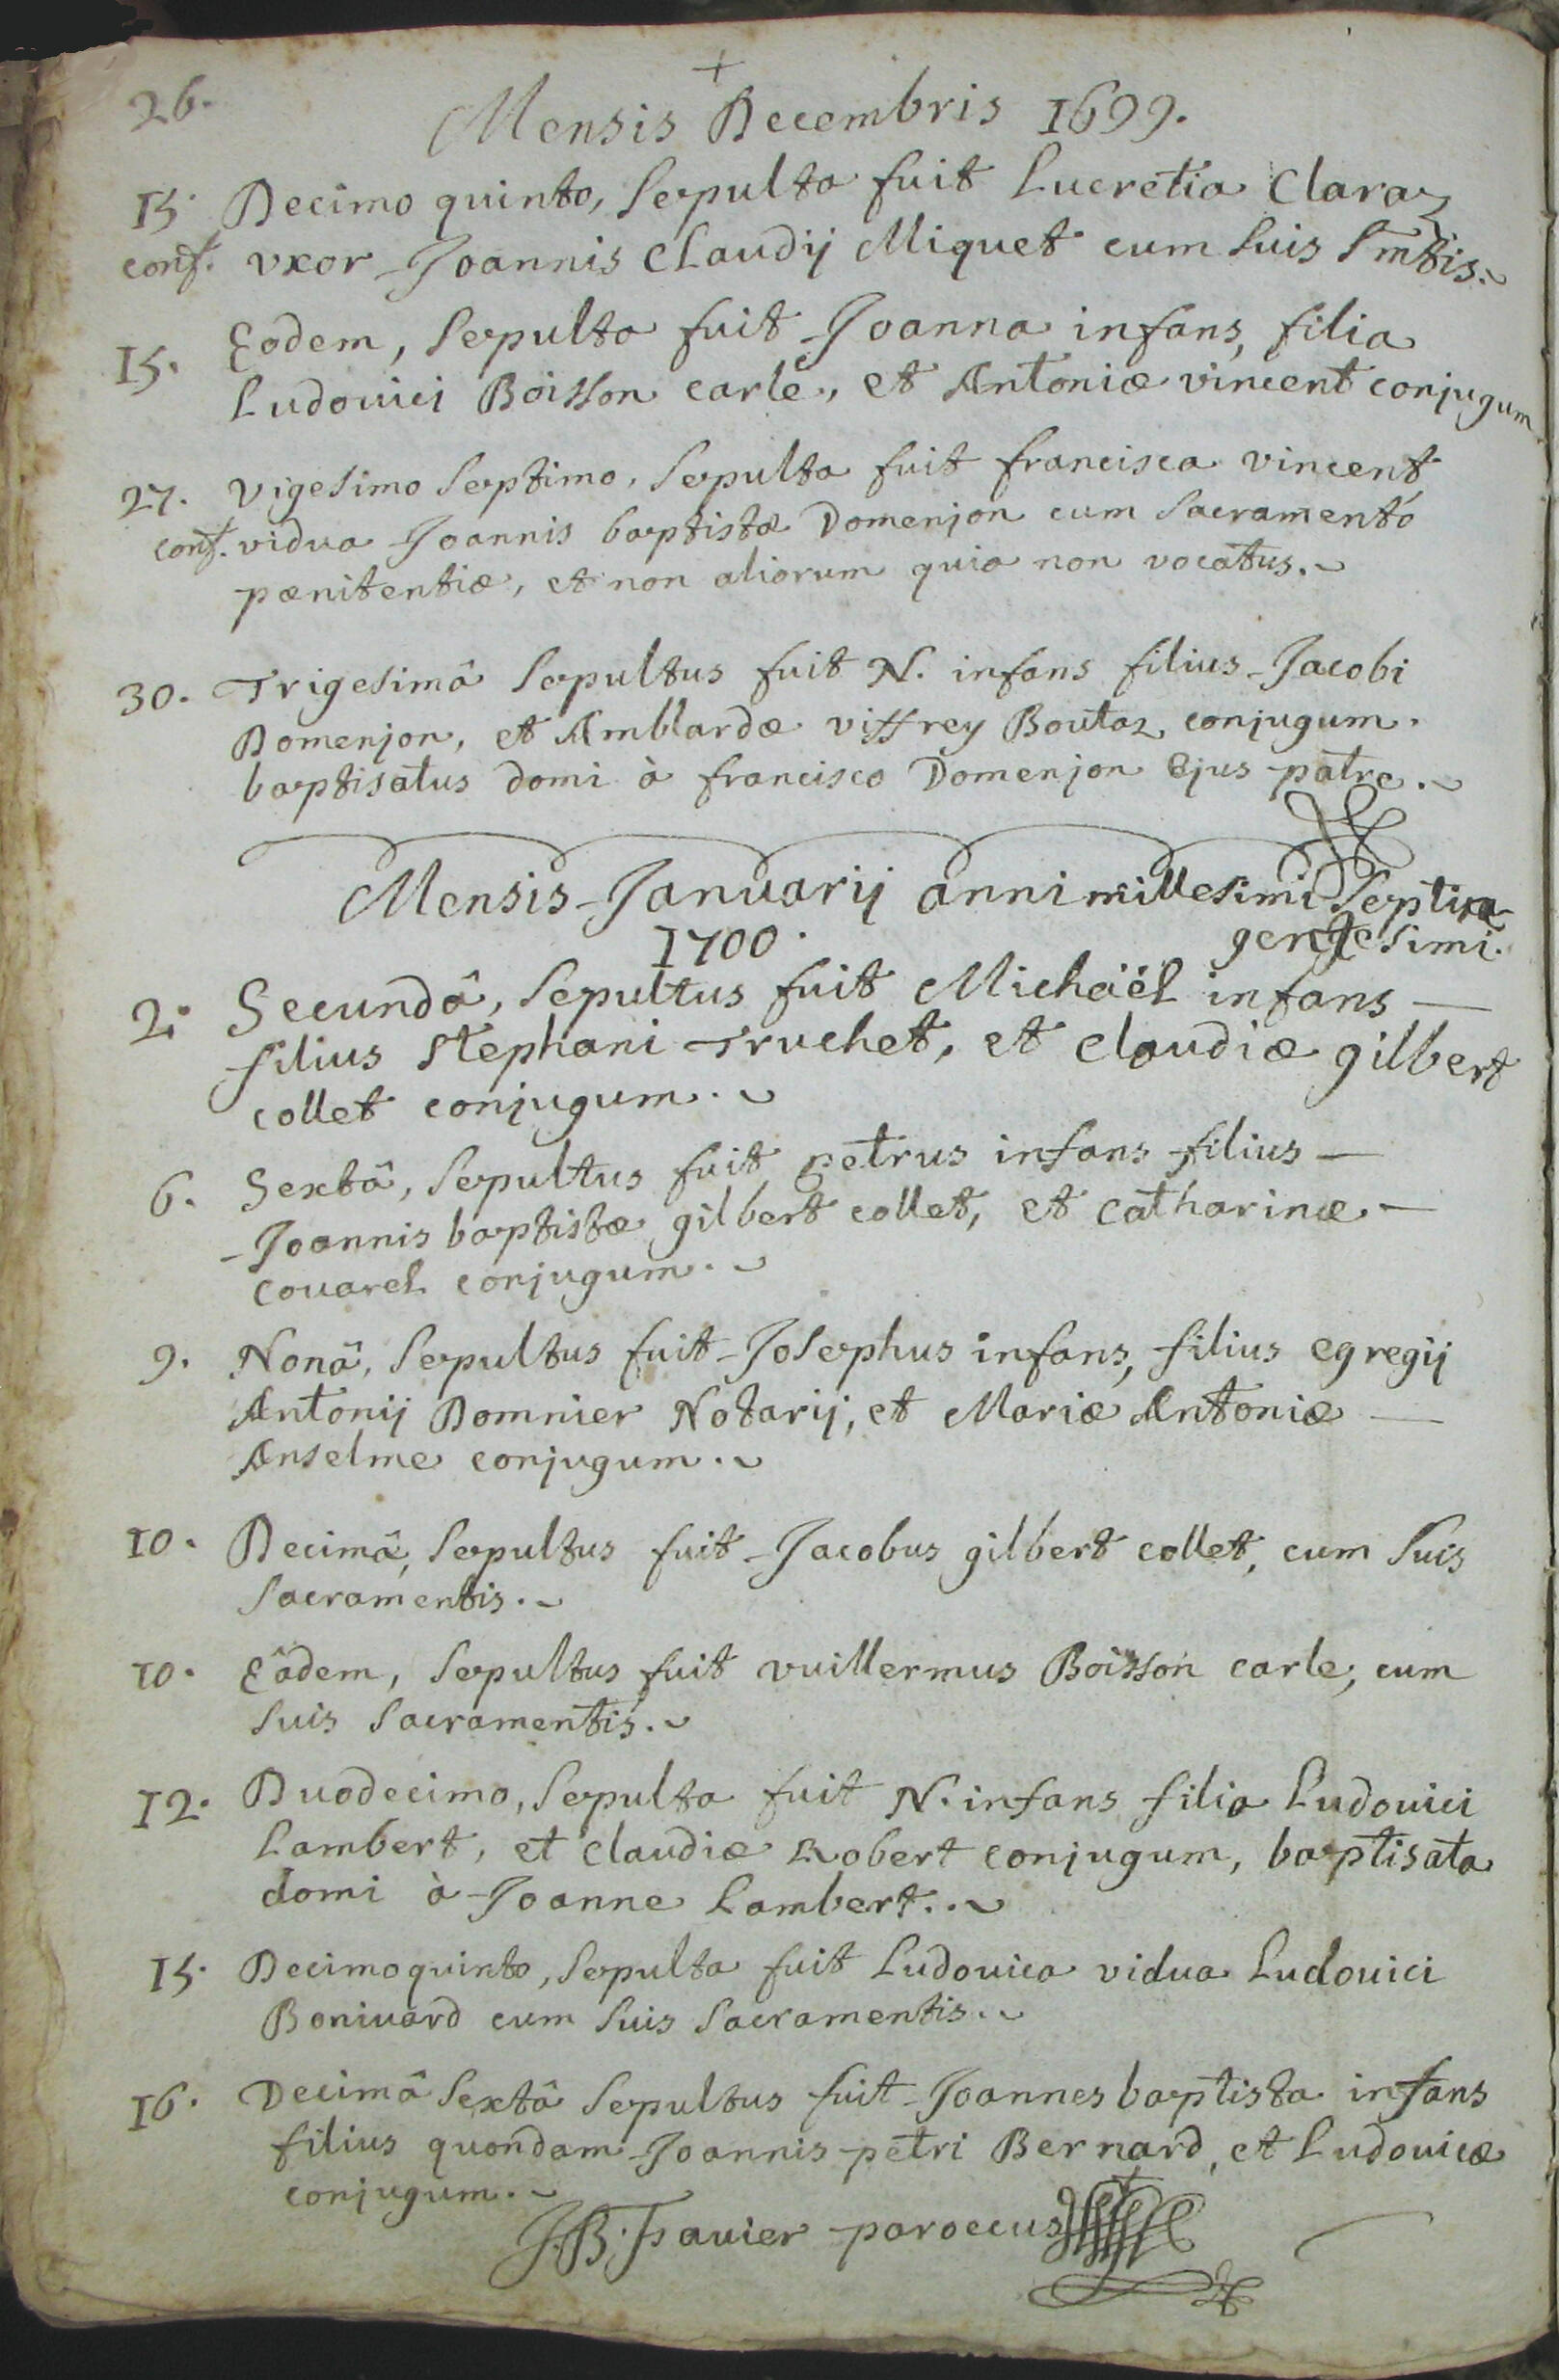 26.
+
Mensis Decembris 1699.
15. Decimo quinto, sepulta fuit Lucretia Claraz
conf. vxor Joannis Claudij Miquet cum suis Smtis.
15. Eodem, sepulta fuit Joanna infans, filia
Ludouici Boisson carle, et Antoniæ vincent conjugum
27. vigesimo septimo, sepulta fuit francisca vincent
conf. vidua Joannis baptistæ Domenjon cum sacramento
pænitentiæ, et non aliorum quia non vocatus.
30. Trigesimâ sepultus fuit N. infans filius Jacobi
Domenjon, et Amblardæ viffrey Boutaz conjugum.
baptisatus domi à francisco Domenjon Ejus patre.
Mensis Januarij anni millesimi septin
1700. gentesimi.
2. Secundâ, sepultus fuit Michaël infans
filius stephani Truchet, et claudiæ gilbert
collet conjugum.
6. Sextâ, sepultus fuit petrus infans filius
Joannis baptistæ gilbert collet, et catharinæ
Couarel conjugum.
9. Nonâ, sepultus fuit Josephus infans, filius egregij
Antonij Domnier Notarij, et Mariæ Antoniæ
Anselme conjugum.
10. Decimâ, sepultus fuit Jacobus gilbert collet, cum suis
sacramentis.
10. Eâdem, sepultus fuit vuillermus Boisson carle, cum
suis sacramentis.
12. Duodecimo, sepulta fuit N. infans filia Ludouici
Lambert, et claudiæ Robert conjugum, baptisata
domi à Joanne Lambert.
15. Decimoquinto, sepulta fuit Ludouica vidua Ludouici
Boniuard cum suis sacramentis.
16. Decimâ sextâ sepultus fuit Joannes baptista infans
filius quondam Joannis petri Bernard, et Ludouicæ
conjugum.
J.B. Favier paroccus